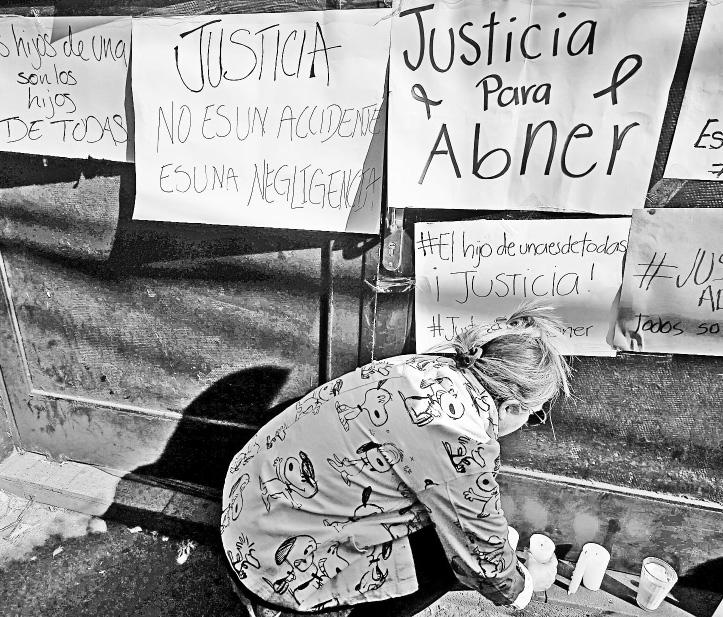 hijos de una
son los
hijos
DE TODAS
JUSTICIA
NO ES UN ACCIDENTE
ES UNA NEGLIGENCIA
Justicia
Para
Abner
#El hijo de una es de todas
¡JUSTICIA!
Abner
Todos